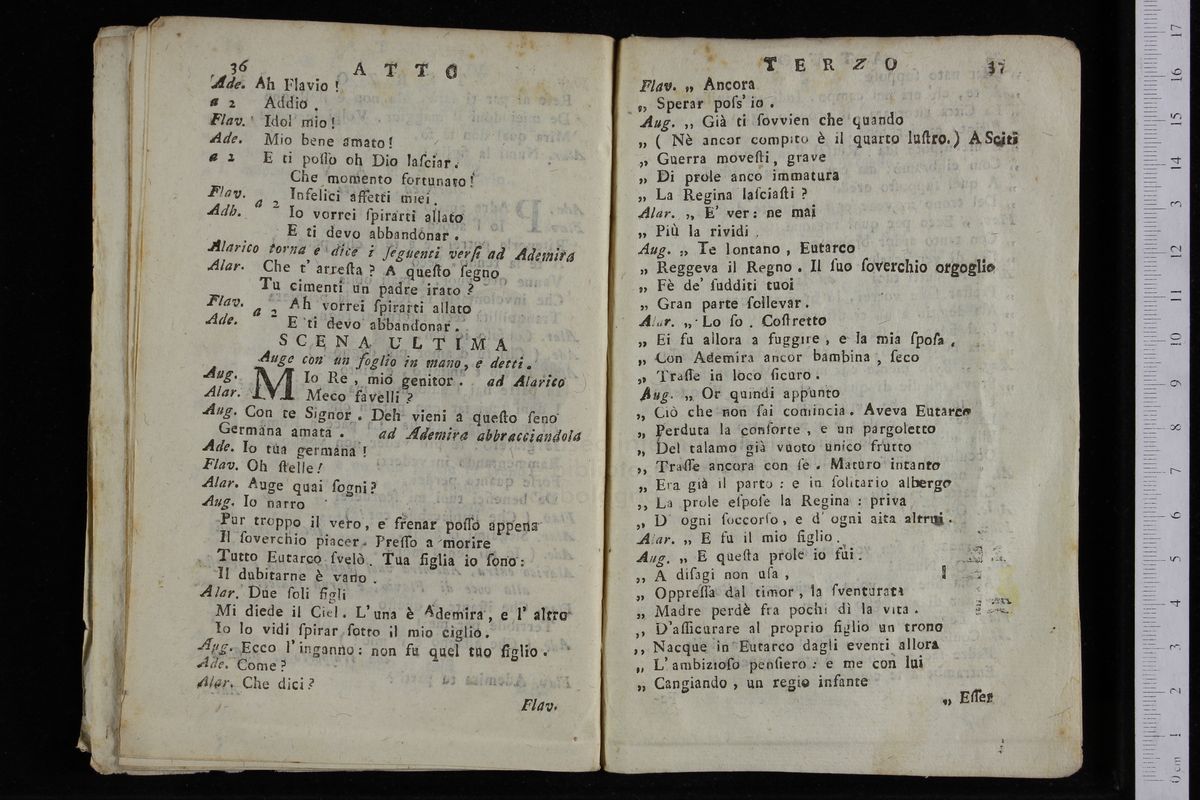 36 ATTO
Ade. Ah Flavio !
a 2 Addio .
Flav. Idol mio !
Ade. Mio bene amato !
a 2 E ti poſſo oh Dio laſciar .
Che momento fortunato !
Flav. a 2 Infelici affetti miei .
Adb. Io vorrei ſpirarti allato
E ti devo abbandonar .
Alarico torna e dice i ſeguenti verſi ad Ademira
Alar. Che t' arreſta ? A queſto ſegno
Tu cimenti un padre irato ?
Flav. a 2 Ah vorrei ſpirarti allato
Ade. E ti devo abbandonar .
SCENA ULTIMA
Auge con un foglio in mano, e detti .
Aug. MIo Re , mio genitor . ad Alarico
Alar. Meco favelli ?
Aug. Con te Signor . Deh vieni a queſto ſeno
Germana amata . ad Ademira abbracciandola
Ade. Io tua germana !
Flav. Oh ſtelle !
Alar. Auge quai ſogni ?
Aug. Io narro
Pur troppo il vero, e frenar poſſo appena
Il ſoverchio piacer . Preſſo a morire
Tutto Eutarco ſvelò . Tua figlia io ſono :
Il dubitarne è vano .
Alar. Due ſoli figli
Mi diede il Ciel . L'una è Ademira, e l' altro
Io lo vidi ſpirar ſotto il mio ciglio .
Aug. Ecco l'inganno : non fu quel tuo figlio .
Ade. Come ?
Alar. Che dici ?
Flav.
TERZO 37
Flav. „ Ancora
„ Sperar poſs' io .
Aug. „ Già ti ſovvien che quando
„ ( Nè ancor compito è il quarto luſtro. ) A Sciti
„ Guerra moveſti, grave
„ Di prole anco immatura
„ La Regina laſciaſti ?
Alar. „ E' ver : ne mai
„ Più la rividi .
Aug. „ Te lontano , Eutarco
„ Reggeva il Regno . Il ſuo ſoverchio orgoglio
„ Fè de' ſudditi tuoi
„ Gran parte ſollevar .
Alar. „ Lo ſo . Coſtretto
„ Ei fu allora a fuggire , e la mia ſpoſa ,
„ Con Ademira ancor bambina , ſeco
„ Traſſe in loco ſicuro .
Aug. „ Or quindi appunto
„ Ciò che non ſai comincia . Aveva Eutarco
„ Perduta la conſorte , e un pargoletto
„ Del talamo già vuoto unico frutto
„ Traſſe ancora con ſe . Maturo intanto
„ Era già il parto : e in ſolitario albergo
„ La prole eſpoſe la Regina : priva
„ D' ogni ſoccorſo , e d' ogni aita altrui .
Alar. „ E fu il mio figlio .
Aug. „ E queſta prole io fui .
„ A diſagi non uſa ,
„ Oppreſſa dal timor , la ſventurata
„ Madre perdè fra pochi dì la vita .
„ D'aſſicurare al proprio figlio un trono
„ Nacque in Eutarco dagli eventi allora
„ L' ambizioſo penſiero : e me con lui
„ Cangiando , un regio infante
„ Eſſer